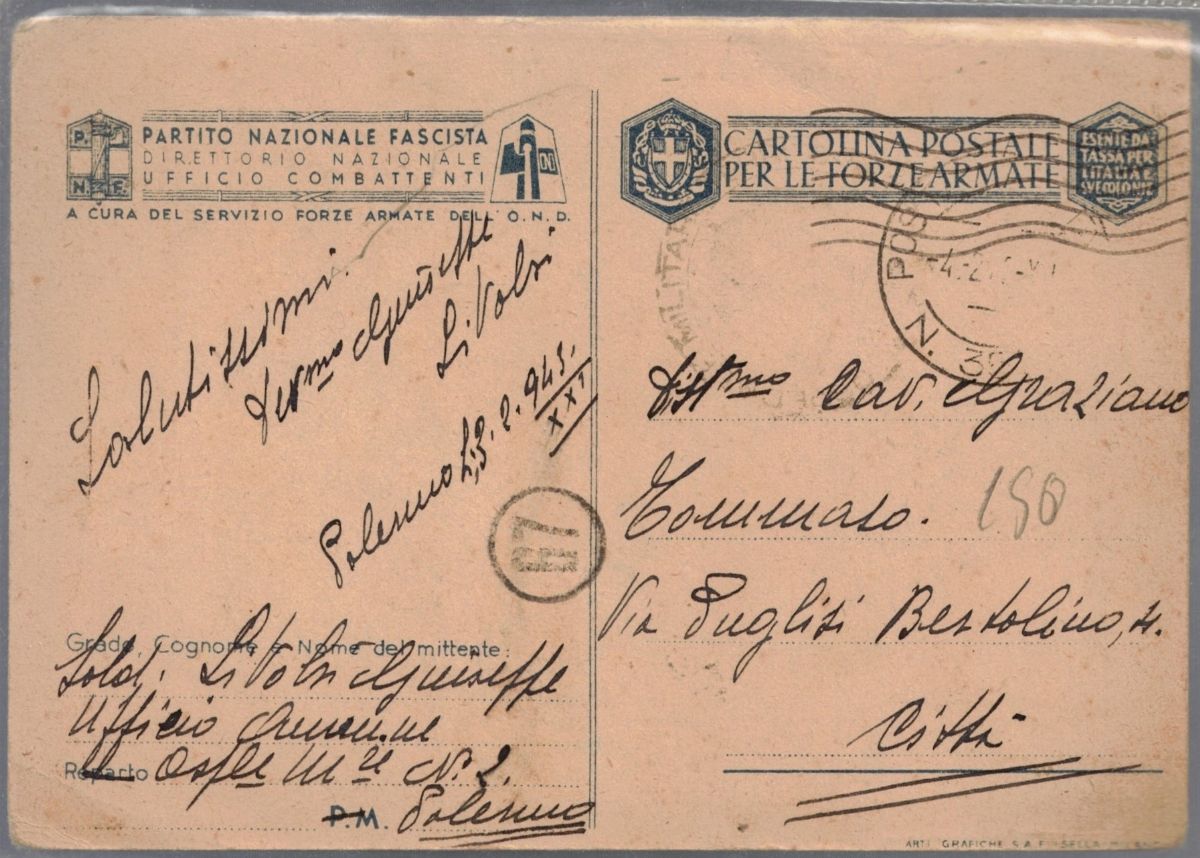 P. N. F.
PARTITO NAZIONALE FASCISTA
DIRETTORIO NAZIONALE
UFFICIO COMBATTENTI
OND
A CURA DEL SERVIZIO FORZE ARMATE DELL'O.N.D.
Salutissimi
Dev.mo Giuseppe
Li Volsi
Palermo Lì, 3.2.943.
XXI
67
Grado, Cognome e Nome del mittente:
Sold. Li Volsi Giuseppe
Ufficio
Reparto Osple Mre N. 2.
P.M. Palermo
CARTOLINA POSTALE
PER LE FORZE ARMATE
ESENTE DA
TASSA PER
L'ITALIA E
SUE COLONIE
POST
-4.2.
N. 3
MILITAR
Cav. Graziano
Tommaso.
190
Via Puglisi Bertolino, 4.
Città
ARTI GRAFICHE S.A.